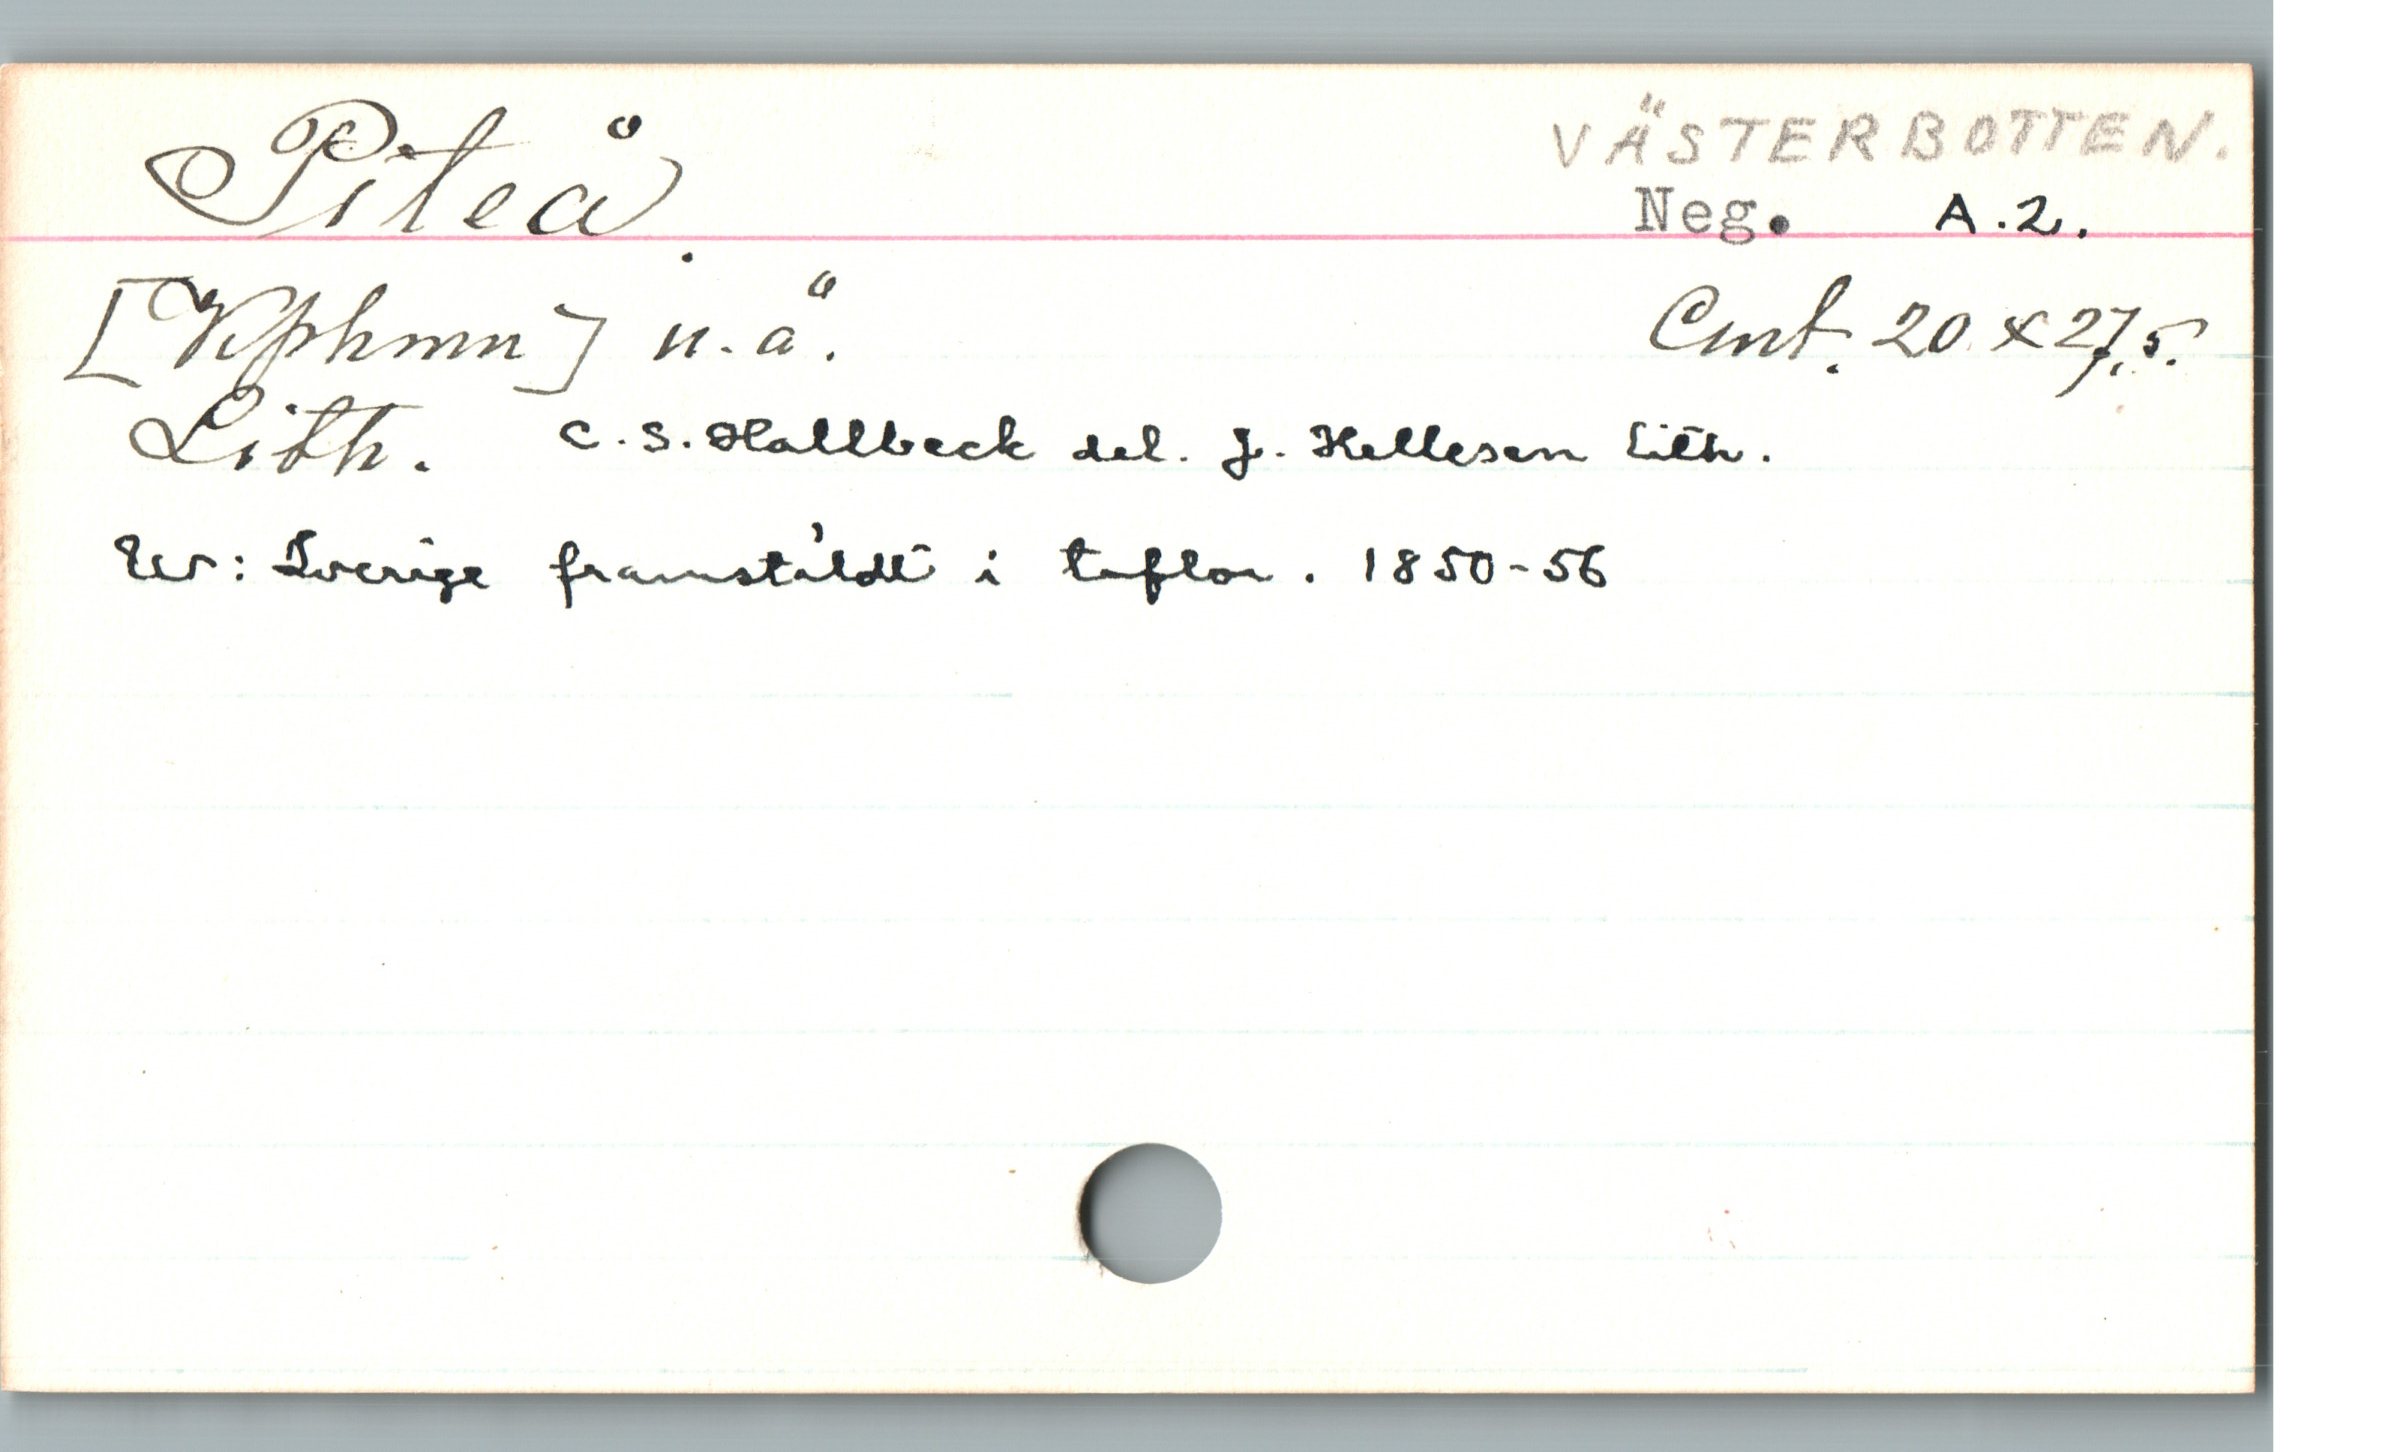 Piteå. VÄSTERBOTTEN.
Neg. A.2.
[Kphmn] u. ä. Cmt. 20 x 27,5.
Lith. C.S. Hallbeck del. J. Hellesen lith.
Ur: Sverige framställdt i taflor. 1850-56